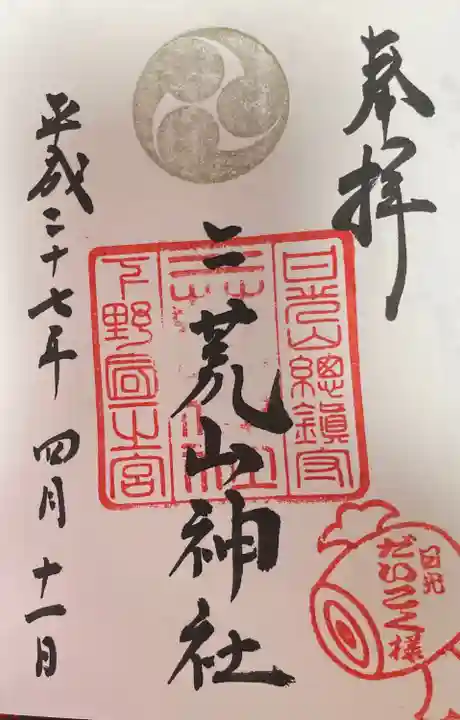 奉拝
日光山總鎮守
二荒山神社
下野國一之宮
平成二十七年 四月 十一日
日光
だいこく様